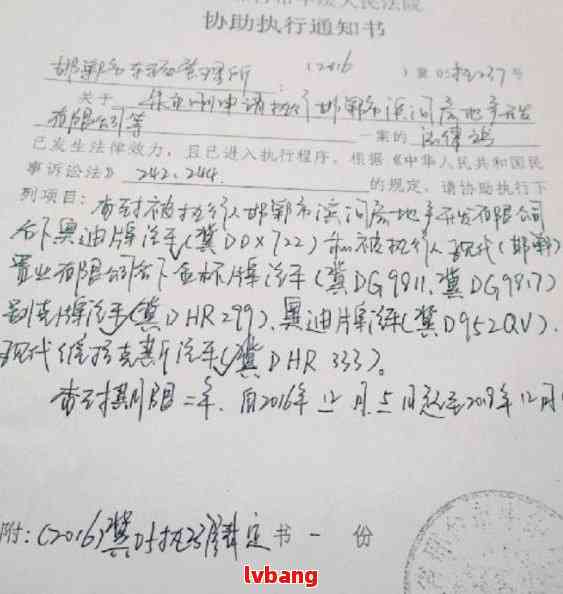 人民法院
协助执行通知书
邯郸市车辆管理所 (2016) 第05执237号
关于 申请执行邯郸市滨河房地产开发
有限公司等 一案的 法律文书
已发生法律效力,且已进入执行程序。根据《中华人民共和国民
事诉讼法》 242、244 的规定,请协助执行下
列项目:查封被执行人邯郸市滨河房地产开发有限公司
名下奥迪牌汽车(冀DDX722)和被执行人现代(邯郸)
置业有限公司名下金杯牌汽车(冀DG9811、冀DG9817)
别克牌汽车(冀DHR299)、奥迪牌汽车(冀D952QV)、
现代维拉克斯汽车(冀DHR333)。
查封期限二年,自2016年12月5日起至 年12月
附:(2016)冀 裁定书一份
lvbang